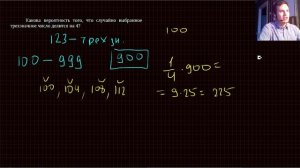 Какова вероятность того, что случайно выбранное
трехзначное число делится на 4?
123 – трехзн.
100 – 999
900
100, 104, 108, 112
100
1/4 · 900 =
= 9 · 25 = 225